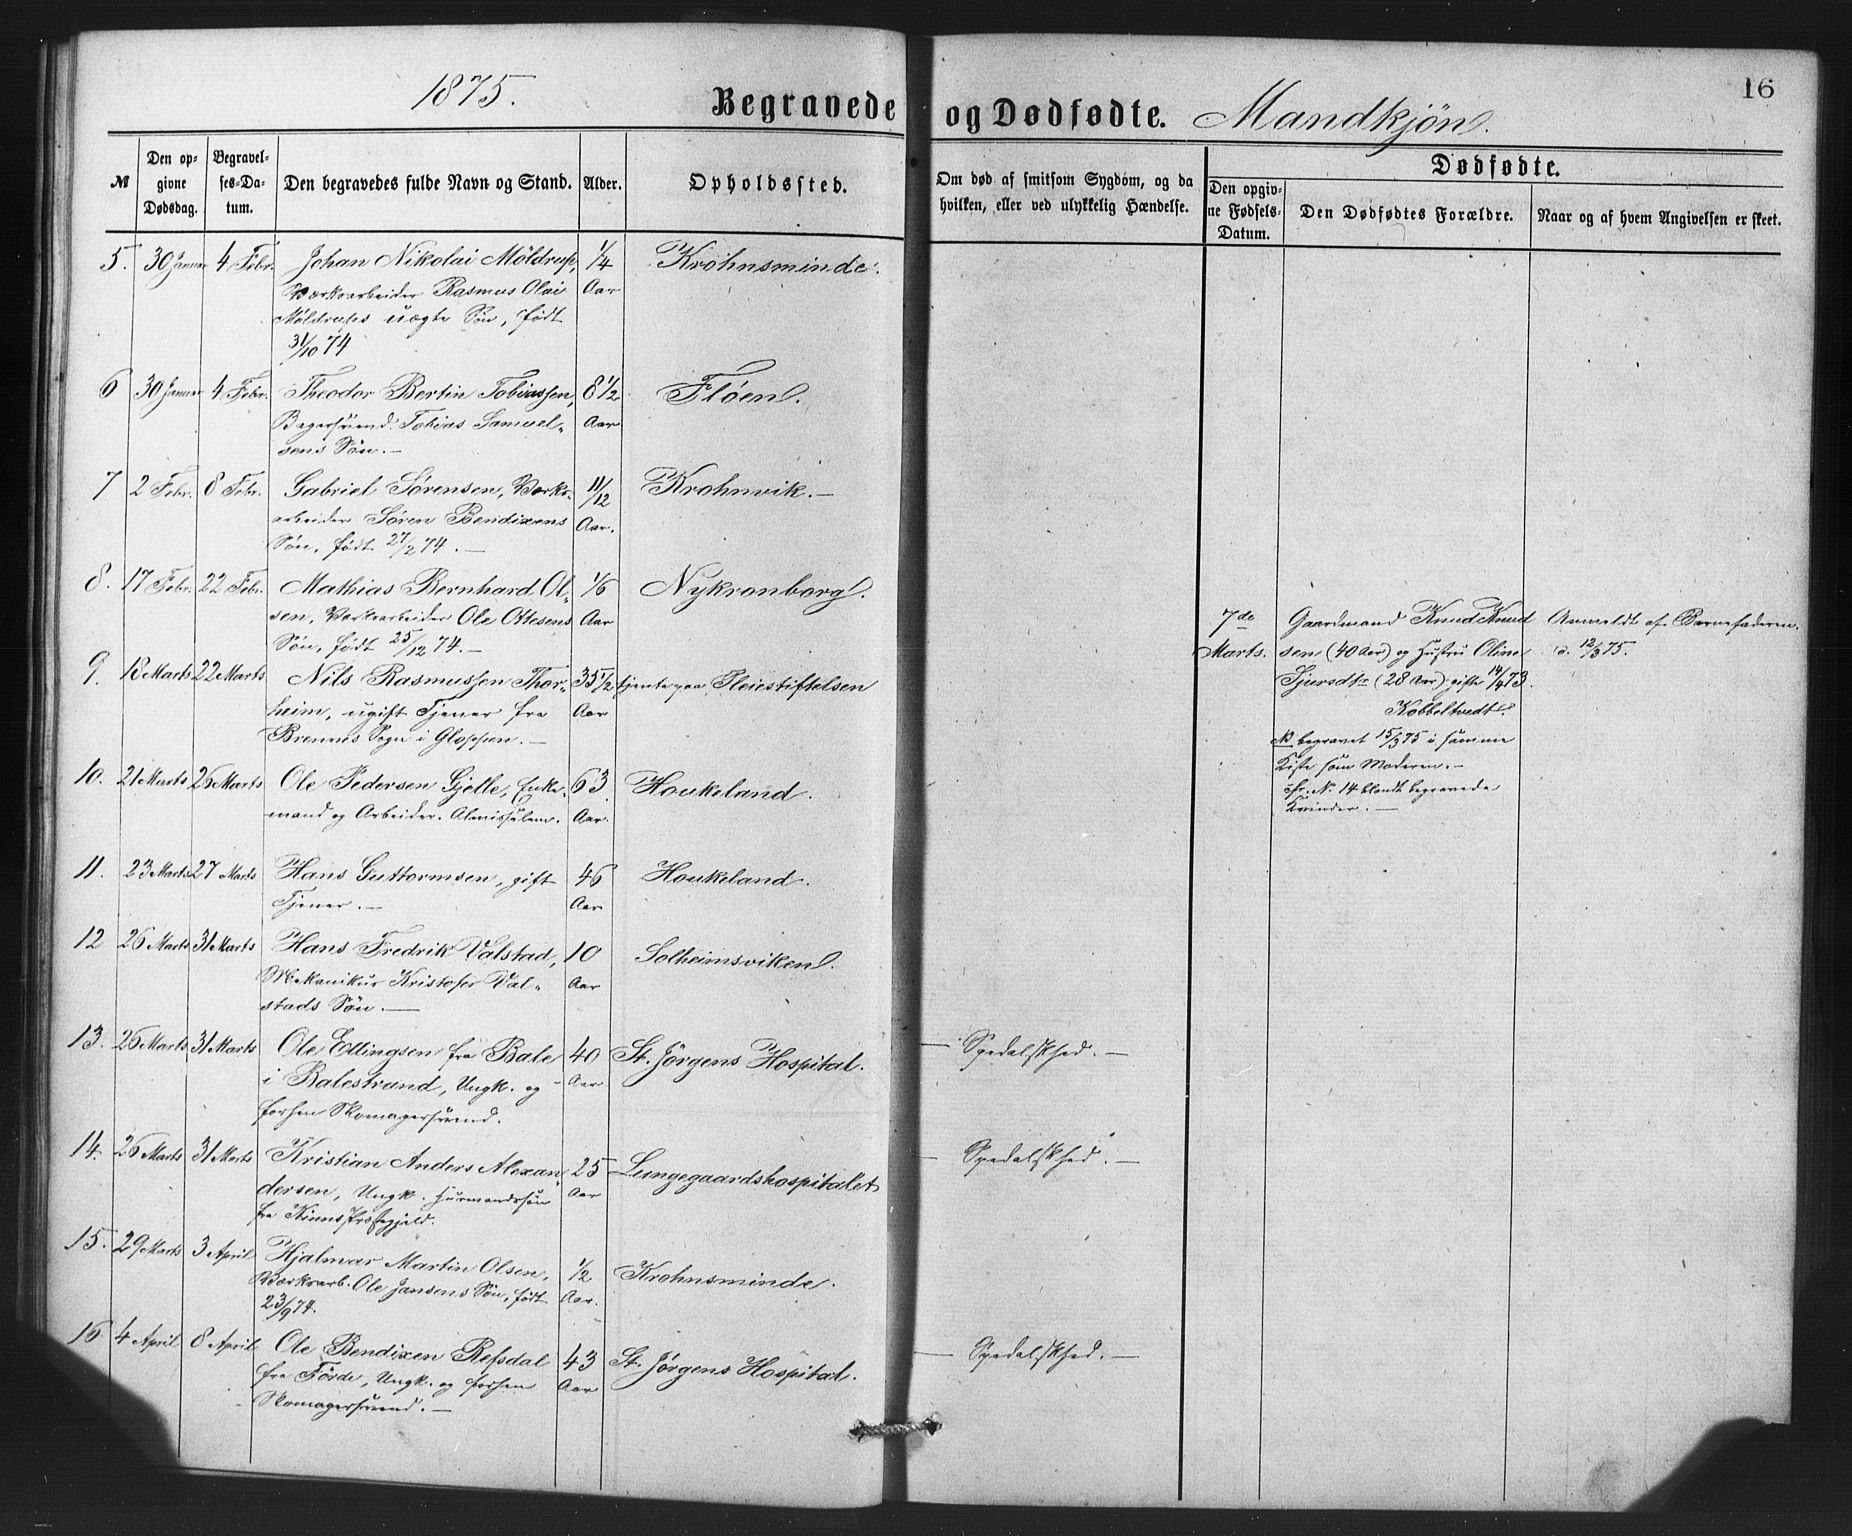 1875.
Begravede og Dødfødte. Mandkjøn.
16
№
Den opgivne Dødsdag.
Begravelses-Datum.
Den begravedes fulde Navn og Stand.
Alder.
Opholdssted.
Om død af smitsom Sygdom, og da hvilken, eller ved ulykkelig Hændelse.
Dødfødte.
Den opgivne Fødsels-Datum.
Den Dødfødtes Forældre.
Naar og af hvem Angivelsen er skeet.
5. 30 Januar 4 Febr. Johan Nikolai Møldrup, 1/4 Krohnsminde.
Værksarbeider Rasmus Olai Aar
Møldrups uægte Søn, født
31/10 74
6 30 Januar 4 Febr. Theodor Bertin Tobiassen, 8 1/2 Fløen.
Bagersvend Tobias Samuel- Aar
sens Søn.
7 2 Febr. 8 Febr. Gabriel Sørensen, Værks- 11/12 Krohnvik.
arbeider Søren Bendixens Aar.
Søn, født 27/2 74.
8. 17 Febr. 22 Febr. Mathias Bernhard Ol- 1/6 Nykronborg.
sen, Værksarbeider Ole Ottesens Aar
Søn, født 25/12 74.
9. 18 Marts 22 Marts Nils Rasmussen Thor- 35 1/2 tjente paa Pleiestiftelsen
heim, ugift Tjener fra Aar
Brennes Sogn i Gloppen.
10. 21 Marts 26 Marts Ole Pedersen Gjelle, Enke- 63 Houkeland.
mand og Arbeider. Almisselem. Aar.
11. 23 Marts 27 Marts Hans Guttormsen, gift 46 Houkeland.
Tjener. Aar
12 26 Marts 31 Marts Hans Fredrik Valstad, 10 Solheimsviken.
Mekanikus Kristofer Val- Aar
stads Søn.
13. 26 Marts 31 Marts Ole Ellingsen fra Bale 40 St. Jørgens Hospital. Spedalskhed.
i Balestrand, Ungk. og Aar
forhen Skomagersvend.
14. 26 Marts 31 Marts Kristian Anders Alexan- 25 Lungegaardshospitalet Spedalskhed.
dersen, Ungk. Husmandssøn Aar
fra Kinns Præstegjeld.
15. 29 Marts 3 April Hjalmar Martin Olsen, 1/2 Krohnsminde.
Værksarb. Ole Jansens Søn, født Aar.
23/9 74.
16 4 April 8 April Ole Bendixen Refsdal 43 St. Jørgens Hospital. Spedalskhed.
fra Førde, Ungk. og forhen Aar
Skomagersvend.
7de Gaardmand Knud Knud Anmeldt af Barnefaderen
Marts. sen (40 Aar) og Hustru Oline d. 12/3 75.
Sjursdtr (28 Aar) gifte 14/4 73.
Kobbeltvedt.
NB begravet 15/3 75 i samme
Kiste som Moderen.
cfr. No 14 blandt begravede
Kvinder.